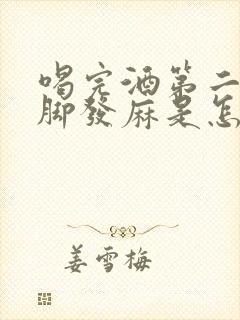 喝完酒第二
脚發麻是怎
姜雪梅